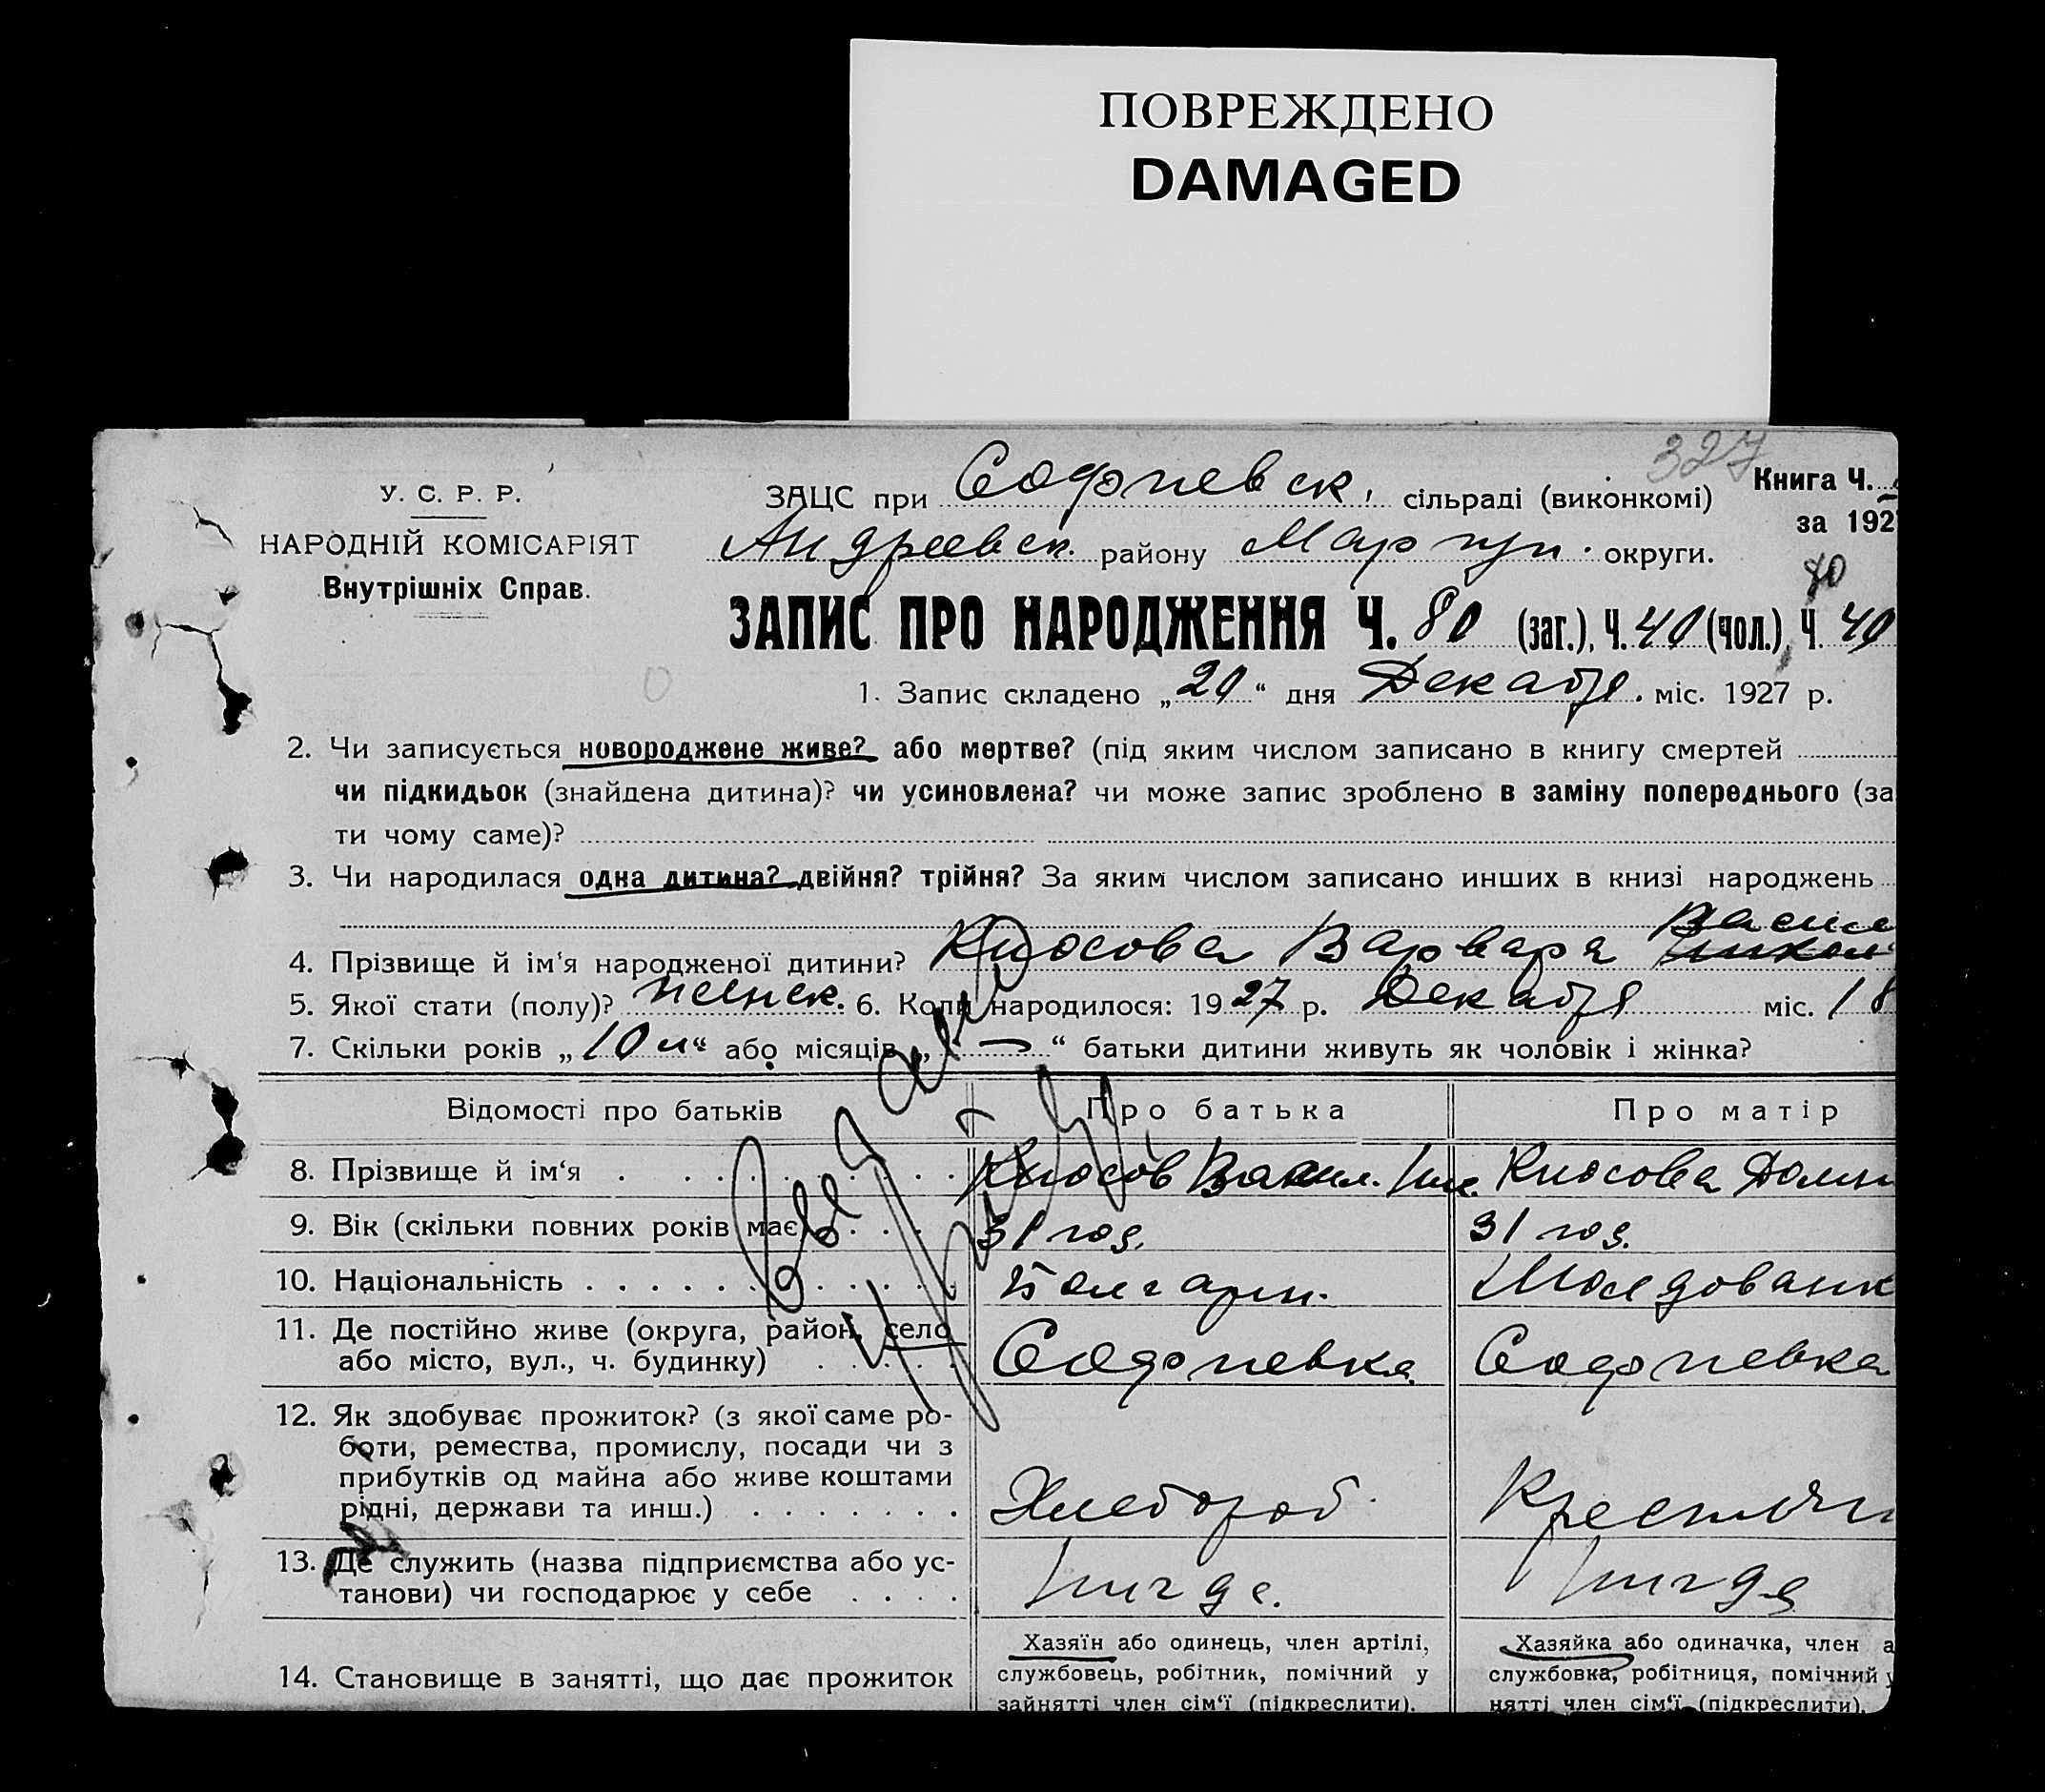 ПОВРЕЖДЕНО
DAMAGED
327
У. С. Р. Р.
НАРОДНІЙ КОМІСАРІЯТ
Внутрішніх Справ.
ЗАЦС при Софиевск. сільраді (виконкомі) Книга Ч.
за 192
Андреевск. району Мариуп. округи.
40
ЗАПИС ПРО НАРОДЖЕННЯ Ч. 80 (заг.), Ч. 40 (чол.), Ч. 40
1. Запис складено „20“ дня Декабря. міс. 1927 р.
2. Чи записується новороджене живе? або мертве? (під яким числом записано в книгу смертей
чи підкидьок (знайдена дитина)? чи усиновлена? чи може запис зроблено в заміну попереднього (за
ти чому саме)?
3. Чи народилася одна дитина? двійня? трійня? За яким числом записано инших в книзі народжень
Васил
4. Прізвище й ім‘я народженої дитини? Кюсова Варвара
5. Якої стати (полу)? женск. 6. Коли народилося: 1927 р. Декабря міс. 18
7. Скільки років „10 л“ або місяців „—“ батьки дитини живуть як чоловік і жінка?
Відомості про батьків Про батька Про матір
8. Прізвище й ім‘я Кюсов Васил. Кюсова Домн
9. Вік (скільки повних років має 31 год. 31 год.
10. Національність Болгарин. Молдованк
11. Де постійно живе (округа, район, село
або місто, вул., ч. будинку) Софиевка Софиевка
12. Як здобуває прожиток? (з якої саме ро-
боти, ремества, промислу, посади чи з
прибутків од майна або живе коштами
рідні, держави та инш.) Хлебороб. Крестьян
13. Де служить (назва підприємства або ус-
танови) чи господарює у себе Нигде. Нигде
14. Становище в занятті, що дає прожиток
Хазяїн або одинець, член артілі,
службовець, робітник, помічний у
зайнятті член сім‘ї (підкреслити).
Хазяйка або одиначка, член а
службовка, робітниця, помічний у
нятті член сім‘ї (підкреслити).